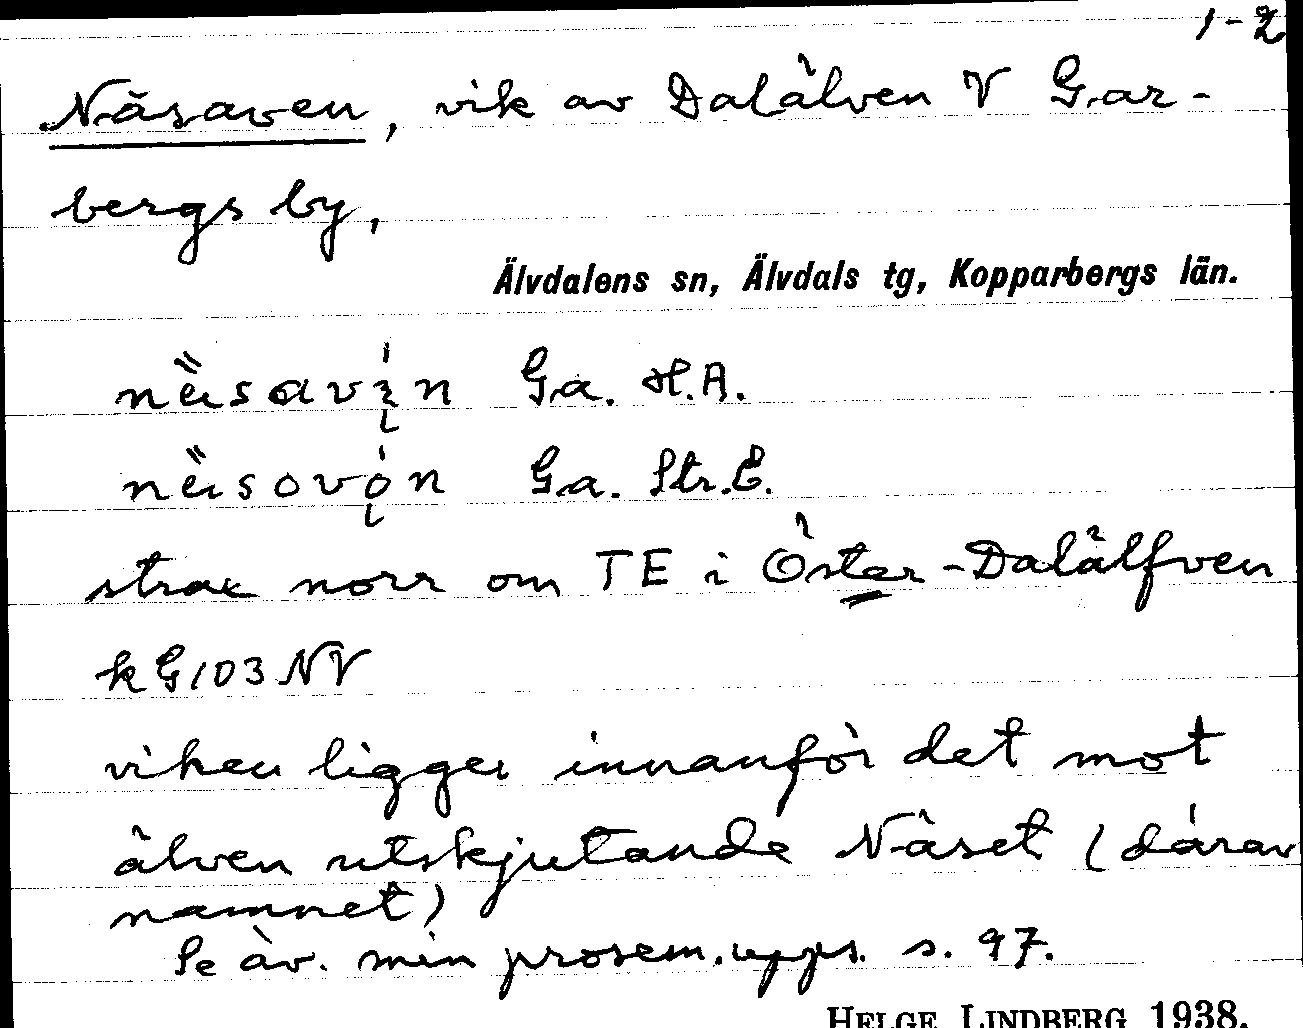 1-2
Näsaven, vik av Dalälven V Gar-
bergs by,
Älvdalens sn, Älvdals tg, Kopparbergs län.
Ga. H.A.
Ga. Str.E.
strax norr om TE i Öster-Dalälfven
kG103NV
viken ligger innanför det mot
älven utskjutande Näset (därav
namnet)
Se äv. min prosem.upps. s. 97.
HELGE LINDBERG 1938.